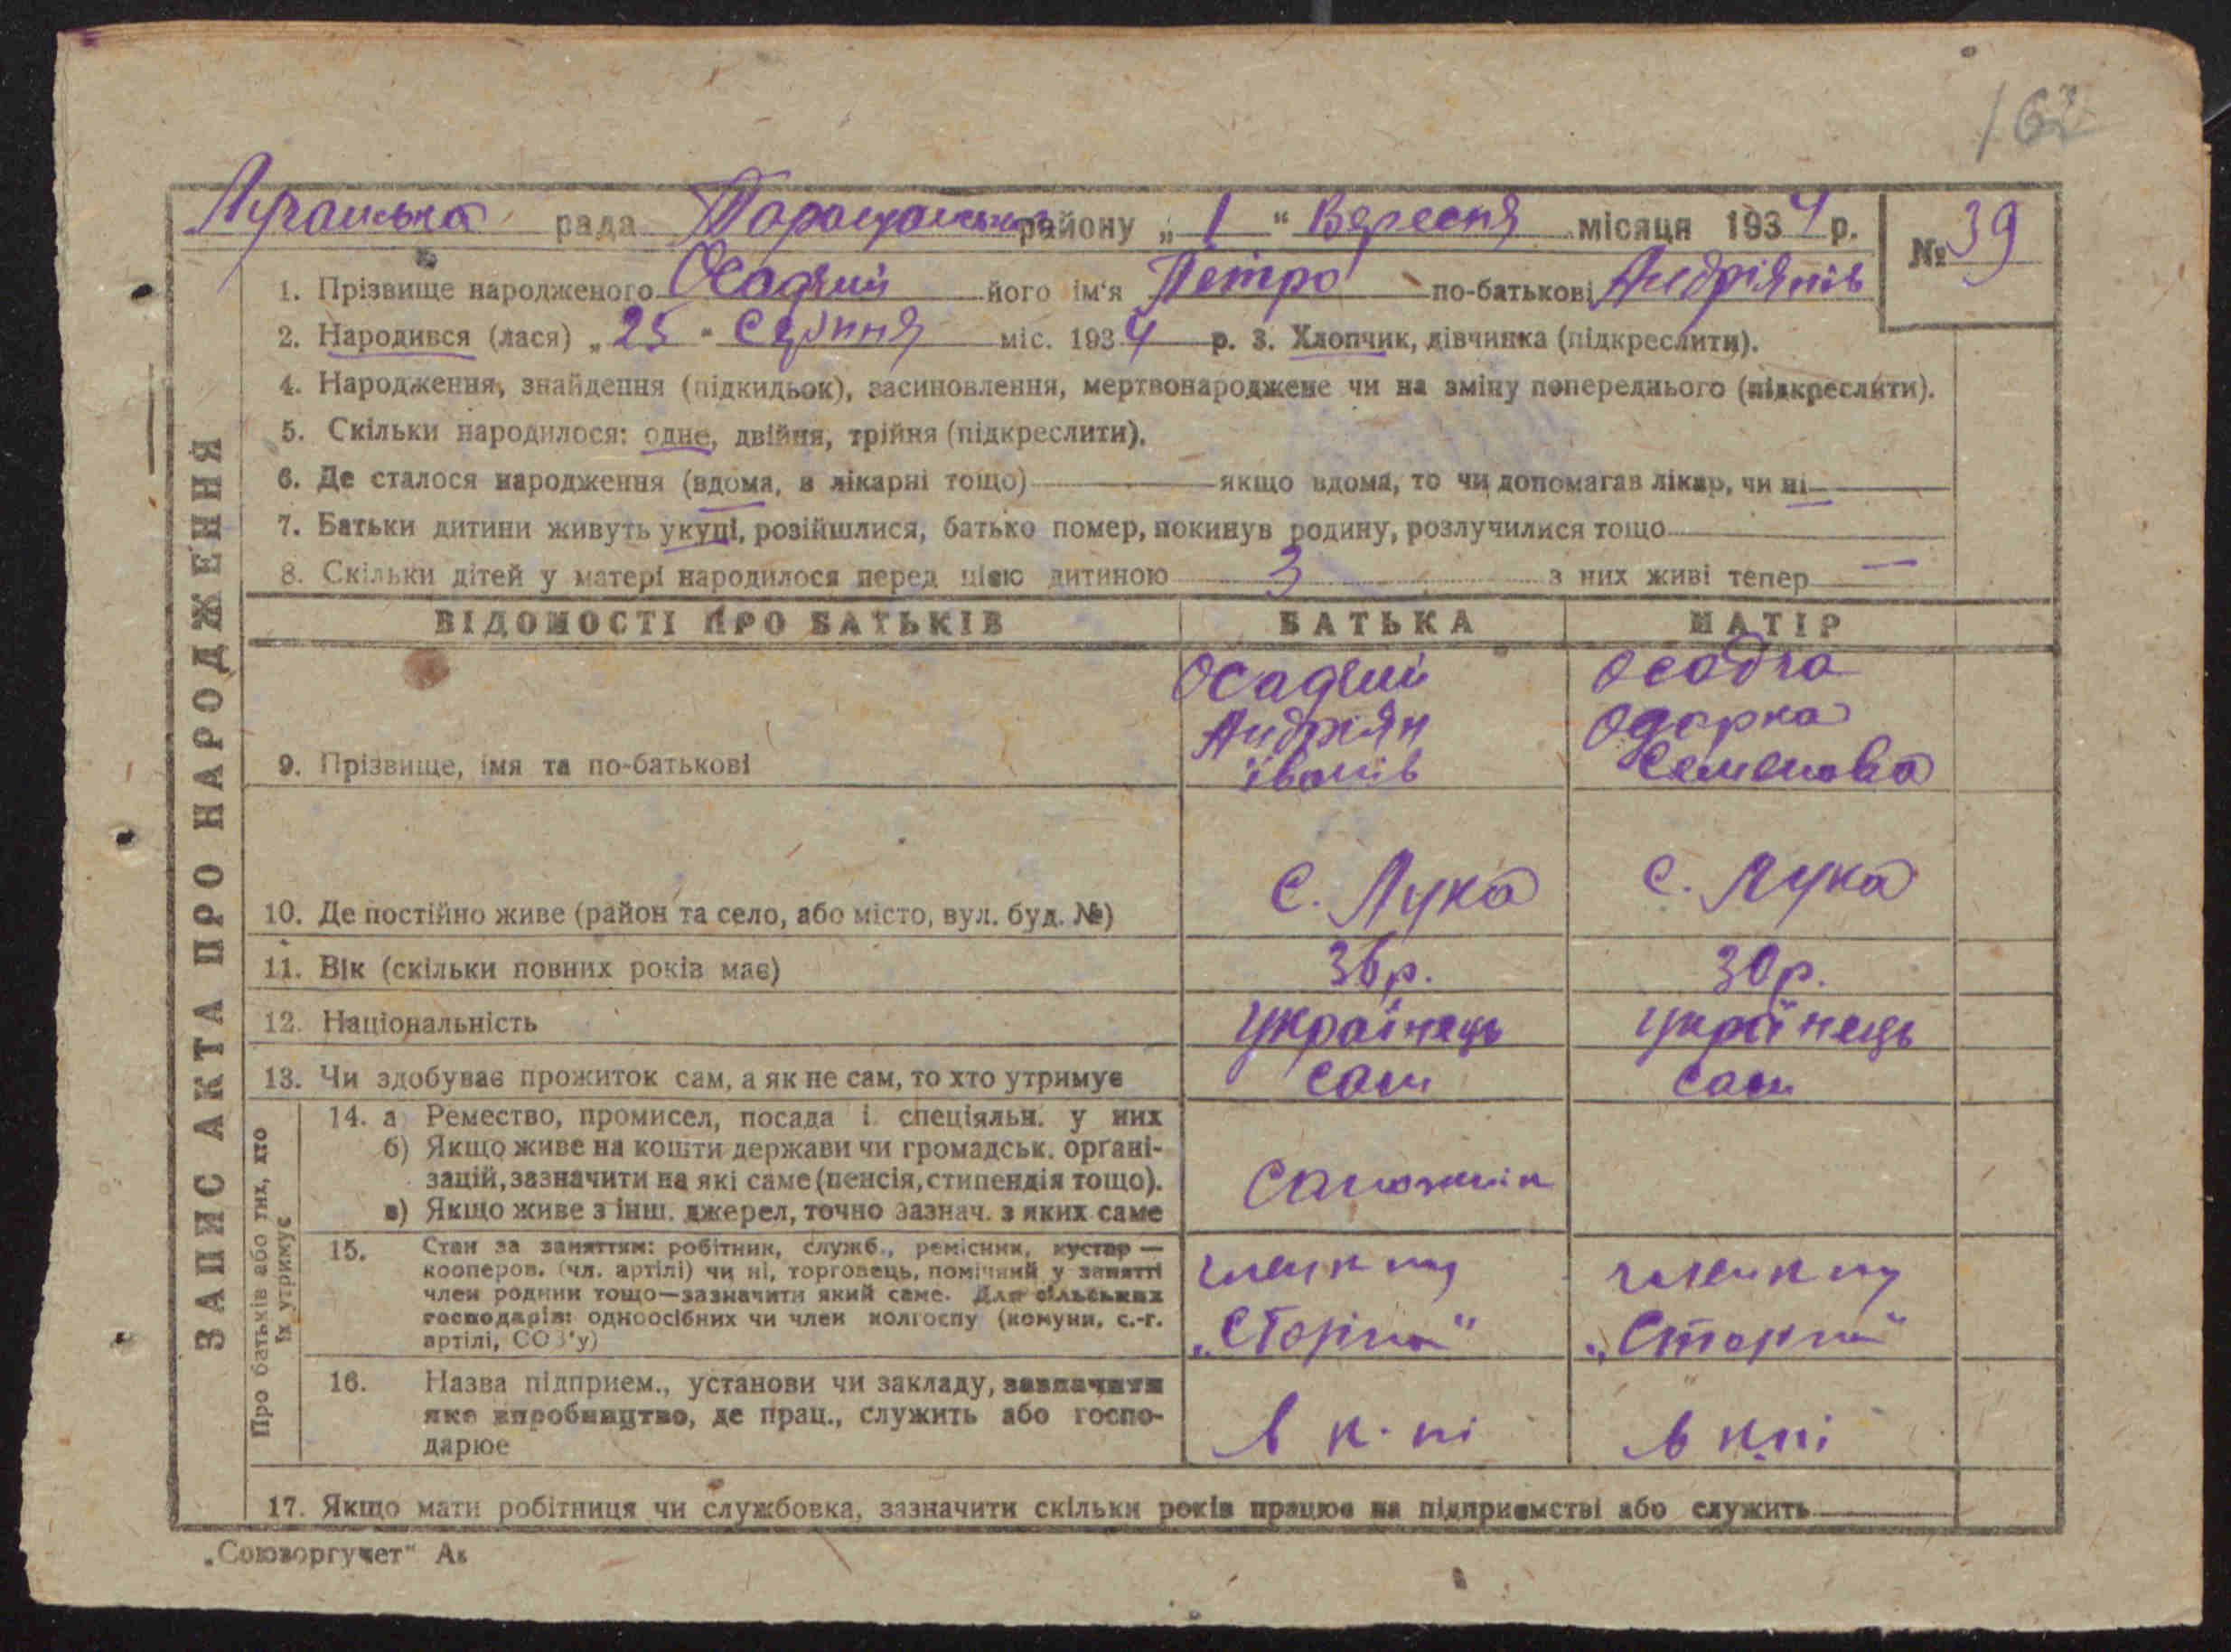 162
Лучанська рада Таращанського району „ 1 “ Вересня місяця 1934 р. № 39
1. Прізвище народженого Осадчий його ім'я Петро по-батькові Андріянів
2. Народився (лася) „ 25 " Серпня міс. 1934 р. 3. Хлопчик, дівчинка (підкреслити).
4. Народження, знайдення (підкидьок), засиновлення, мертвонароджене чи на зміну попереднього (підкреслити).
5. Скільки народилося: одне, двійня, трійня (підкреслити).
6. Де сталося народження (вдома, в лікарні тощо) якщо вдома, то чи допомагав лікар, чи ні
7. Батьки дитини живуть укупі, розійшлися, батько помер, покинув родину, розлучилися тощо
8. Скільки дітей у матері народилося перед цією дитиною 3 з них живі тепер —
ВІДОМОСТІ ПРО БАТЬКІВ БАТЬКА МАТІР
Осадчий Осадча
Андріян Одарка
9. Прізвище, імя та по-батькові Іванів Семенова
10. Де постійно живе (район та село, або місто, вул. буд. №) с. Лука с. Лука
11. Вік (скільки повних років має) 36 р. 30 р.
12. Національність українець українець
13. Чи здобуває прожиток сам, а як не сам, то хто утримує сам сам
14. а Ремество, промисел, посада і спеціяльн. у них
б) Якщо живе на кошти держави чи громадськ. органі-
зацій, зазначити на які саме (пенсія, стипендія тощо).
в) Якщо живе з інш. джерел, точно зазнач. з яких саме
15. Стан за заняттям: робітник, служб., ремісник, кустар —
кооперов. (чл. артілі) чи ні, торговець, помічний у занятті
член родини тощо—зазначити який саме. Для сільських
господарів: одноосібних чи член колгоспу (комуни, с.-г.
артілі, СОЗ'у)
16. Назва підприєм., установи чи закладу, зазначити
яке виробництво, де прац., служить або госпо-
дарює
в к. пі в к пі
17. Якщо мати робітниця чи службовка, зазначити скільки років працює на підприємстві або служить
Про батьків або тих, хто
їх утримує
ЗАПИС АКТА ПРО НАРОДЖЕННЯ
„Союзоргучет“